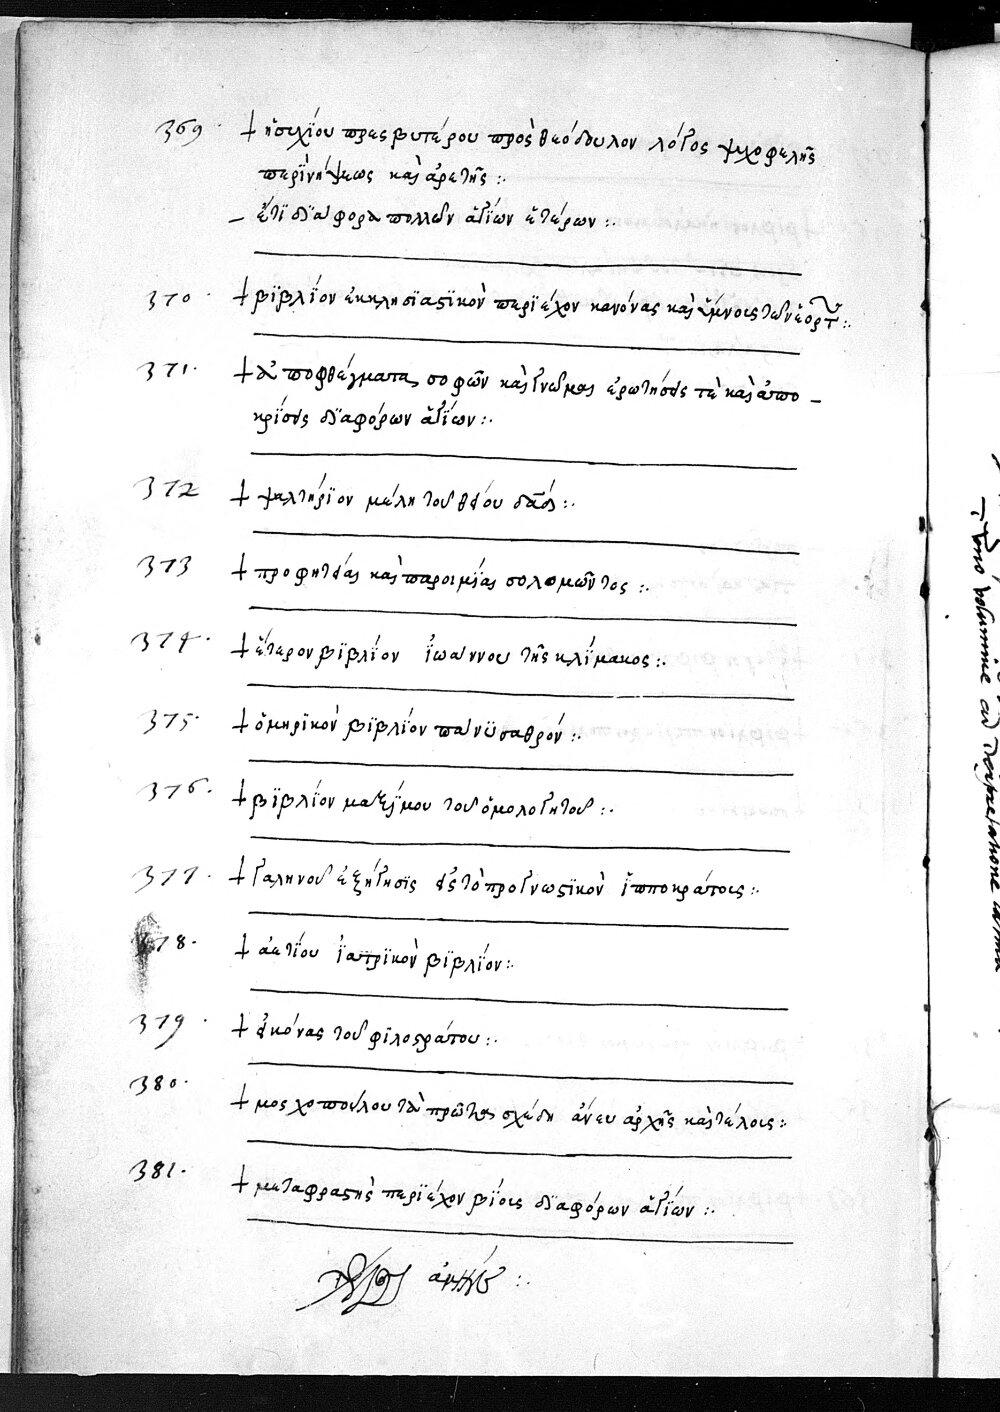 369 · + ἡσυχίου πρεσβυτέρου πρὸς θεόδουλον λόγος ψυχοφελὴς
περὶ νήψεως καὶ ἀρετῆς :.
– ἔτι διάφορα πολλῶν ἁγίων ἑτέρων :.
370 · + βιβλίον ἐκκλησιαστικὸν περιέχον κανόνας καὶ ὕμνους τῶν ἑορτ :.
371 · + ἀποφθέγματα σοφῶν καὶ γνῶμαι ἐρωτήσεις τὲ καὶ ἀπο –
κρίσεις διαφόρων ἁγίων :.
372 + ψαλτήριον μέλη τοῦ θείου δαδ :.
373 + προφητείας καὶ παροιμίας σολομῶντος :.
374 · + ἕτερον βιβλίον ἰωάννου τῆς κλίμακος :.
375 · + ὁμηρικὸν βιβλίον πάνυ σαθρόν :.
376 · + βιβλίον μαξίμου τοῦ ὁμολογητοῦ :.
377 · + γαληνοῦ ἐξήγησις εἰς τὸ προγνωστικὸν ἱπποκράτους :.
378 · + ἀετίου ἰατρικὸν βιβλίον :.
379 · + εἰκόνας τοῦ φιλοστράτου :.
380 · + μοσχοπούλου τὰ πρῶτα σχέδη ἄνευ ἀρχῆς καὶ τέλους :.
381 · + μεταφραστὴς περιέχον βίους διαφόρων ἁγίων :.
volumine